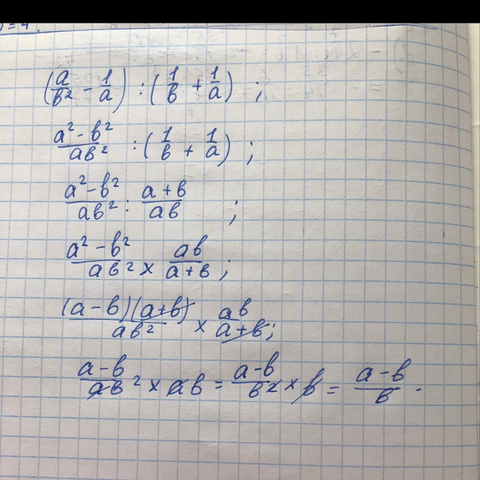 (a/b² - 1/a) : (1/b + 1/a) ;
(a² - b²)/(ab²) : (1/b + 1/a) ;
(a² - b²)/(ab²) : (a + b)/(ab) ;
(a² - b²)/(ab²) × (ab)/(a + b) ;
((a - b)(a + b))/(ab²) × (ab)/(a + b) ;
(a - b)/(ab²) × ab = (a - b)/(b²) × b = (a - b)/b .